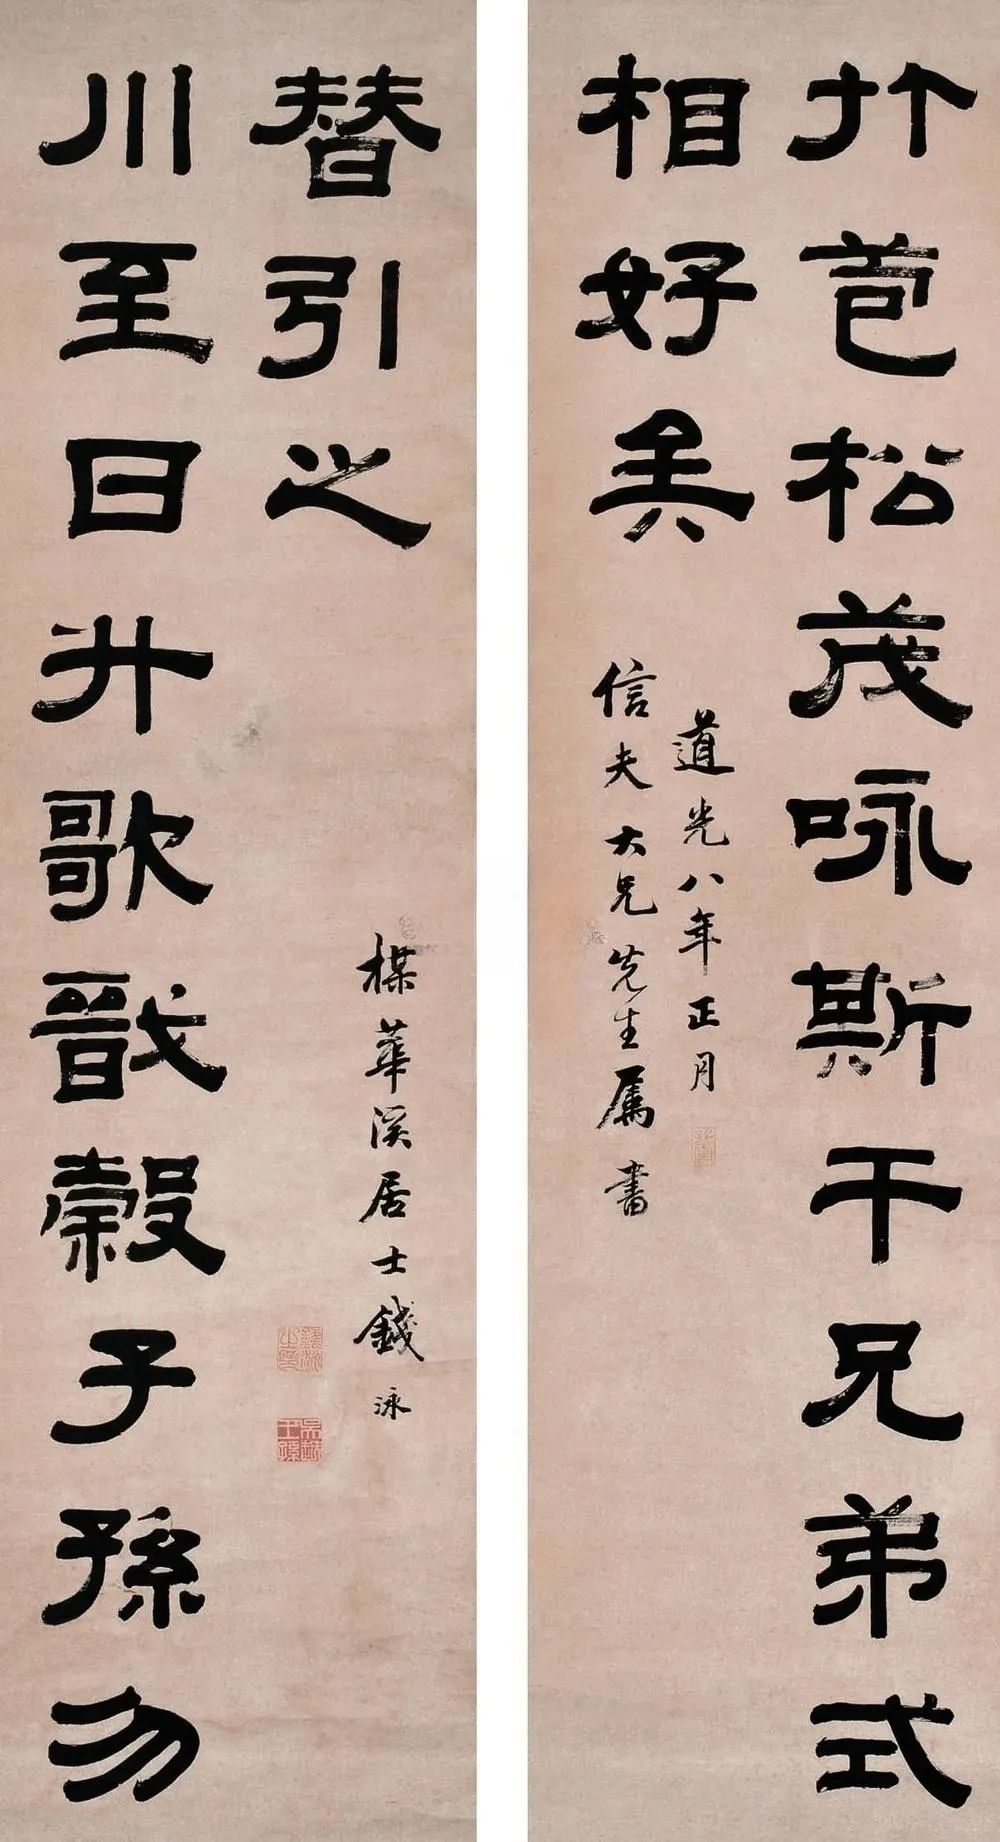 竹苞松茂咏斯干兄弟式
相好矣
道光八年正月
信夫大兄先生属書
川至日升歌戩穀子孫勿
替引之
楳華溪居士錢泳
錢泳之印
吳越王孫